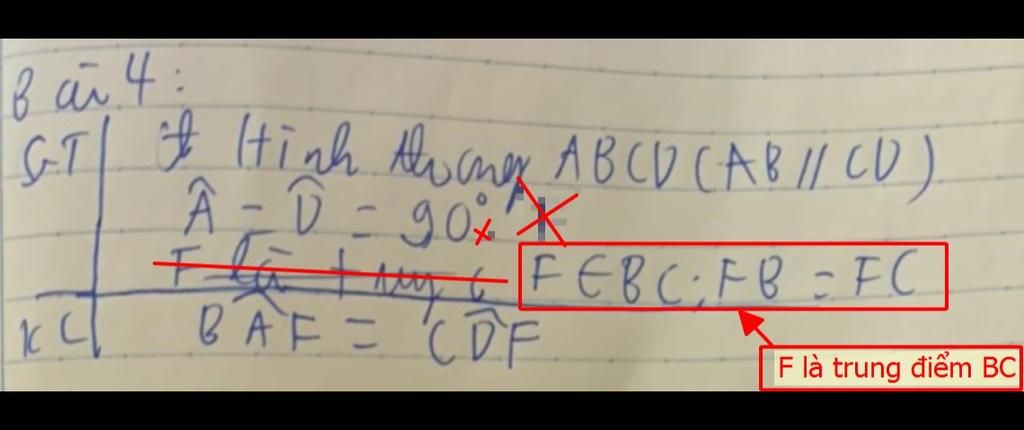 Bài 4:
GT Hình thang ABCD (AB // CD)
Â - D̂ = 90°
F là F ∈ BC; FB = FC
KL BÂF = CD̂F
F là trung điểm BC